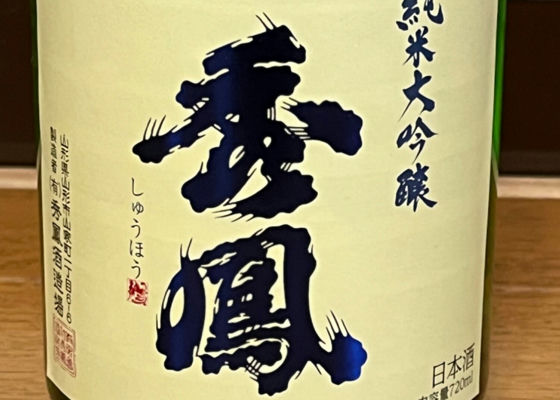 純米大吟醸
秀鳳
しゅうほう
山形県山形市山家町一丁目6-6
製造者 ㈲秀鳳酒造場
日本酒
内容量720ml